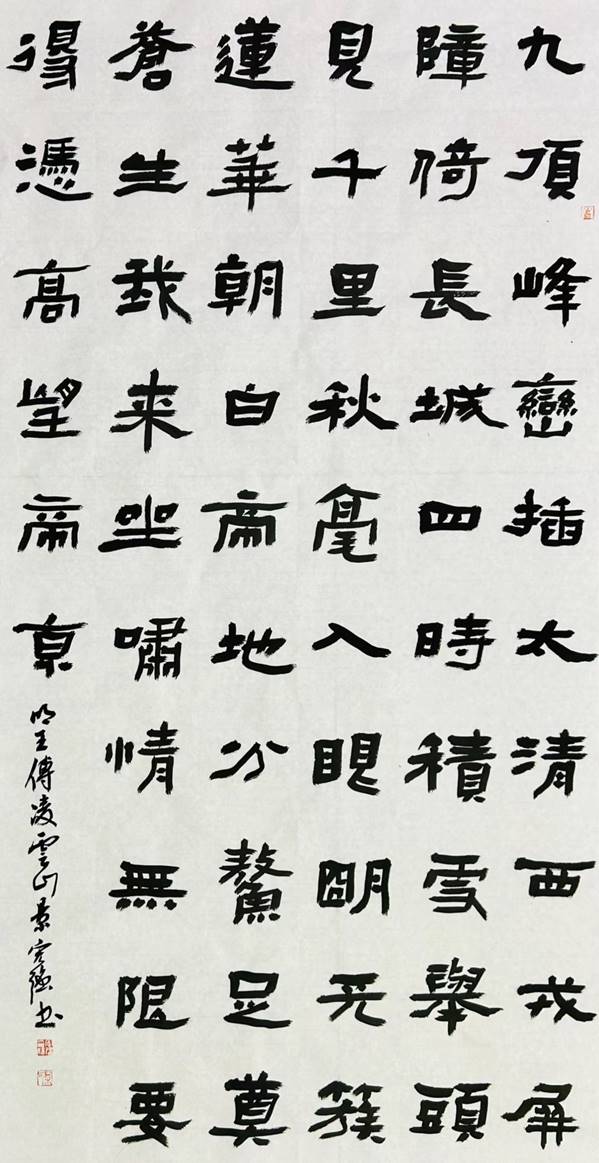 九頂峰巒插太清西戎屏
障倚長城四時積雪舉頭
見千里秋毫入眼明天簇
蓮華朝白帝地分鰲足奠
蒼生我来坐嘯情無限要
得憑高望帝京
明王傳凌雲山景书